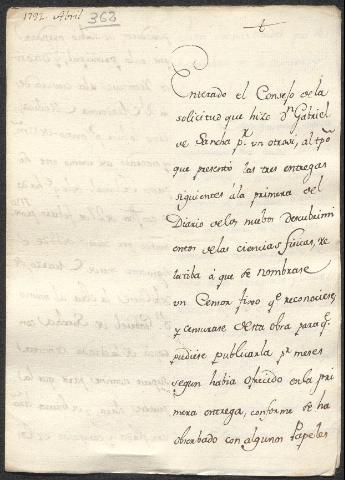 1792. Abril 363
t
Enterado el Consejo de la
solicitud que hizo Dn Gabriel
de Sancha pr. un otrosi, al tpō
que presentó las tres entregas
siguientes á la primera del
Diario de los nuebos descubrimi
entos de las ciencias fisicas, re
latiba á que se nombrase
un Censor fixo qe reconociese,
y censurase esta obra para qe
pudiese publicarla pr meses
segun habia ofrecido en la pri
mera entrega, conforme se ha
obserbado con algunos Papeles